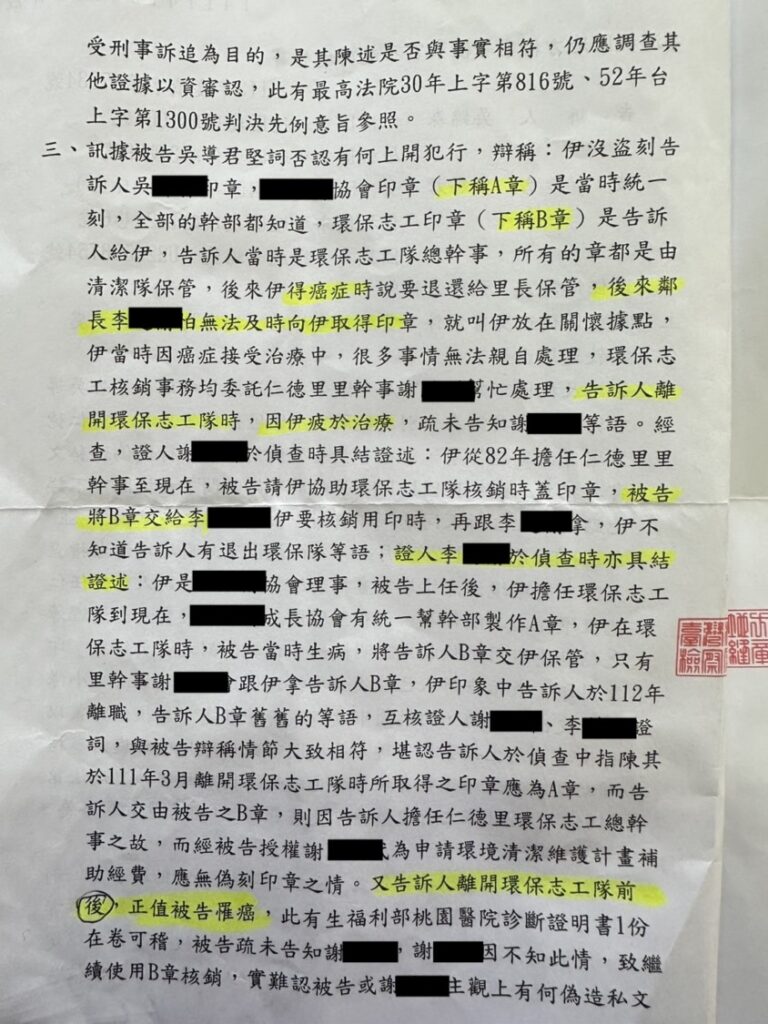 受刑事訴追為目的，是其陳述是否與事實相符，仍應調查其
他證據以資審認，此有最高法院30年上字第816號、52年台
上字第1300號判決先例意旨參照。
三、訊據被告吳導君堅詞否認有何上開犯行，辯稱：伊沒盜刻告
訴人吳 印章， 協會印章（下稱A章）是當時統一
刻，全部的幹部都知道，環保志工印章（下稱B章）是告訴
人給伊，告訴人當時是環保志工隊總幹事，所有的章都是由
清潔隊保管，後來伊得癌症時說要退還給里長保管，後來鄰
長李 怕無法及時向伊取得印章，就叫伊放在關懷據點，
伊當時因癌症接受治療中，很多事情無法親自處理，環保志
工核銷事務均委託仁德里里幹事謝 幫忙處理，告訴人離
開環保志工隊時，因伊疲於治療，疏未告知謝 等語。經
查，證人謝 於偵查時具結證述：伊從82年擔任仁德里里
幹事至現在，被告請伊協助環保志工隊核銷時蓋印章，被告
將B章交給李 伊要核銷用印時，再跟李 拿，伊不
知道告訴人有退出環保隊等語；證人李 於偵查時亦具結
證述：伊是 協會理事，被告上任後，伊擔任環保志工
隊到現在， 成長協會有統一幫幹部製作A章，伊在環
保志工隊時，被告當時生病，將告訴人B章交伊保管，只有
里幹事謝 會跟伊拿告訴人B章，伊印象中告訴人於112年
離職，告訴人B章舊舊的等語，互核證人謝 、李 證
詞，與被告辯稱情節大致相符，堪認告訴人於偵查中指陳其
於111年3月離開環保志工隊時所取得之印章應為A章，而告
訴人交由被告之B章，則因告訴人擔任仁德里環保志工總幹
事之故，而經被告授權謝 為申請環境清潔維護計畫補
助經費，應無偽刻印章之情。又告訴人離開環保志工隊前
後，正值被告罹癌，此有生福利部桃園醫院診斷證明書1份
在卷可稽，被告疏未告知謝 ，謝 因不知此情，致繼
續使用B章核銷，實難認被告或謝 主觀上有何偽造私文